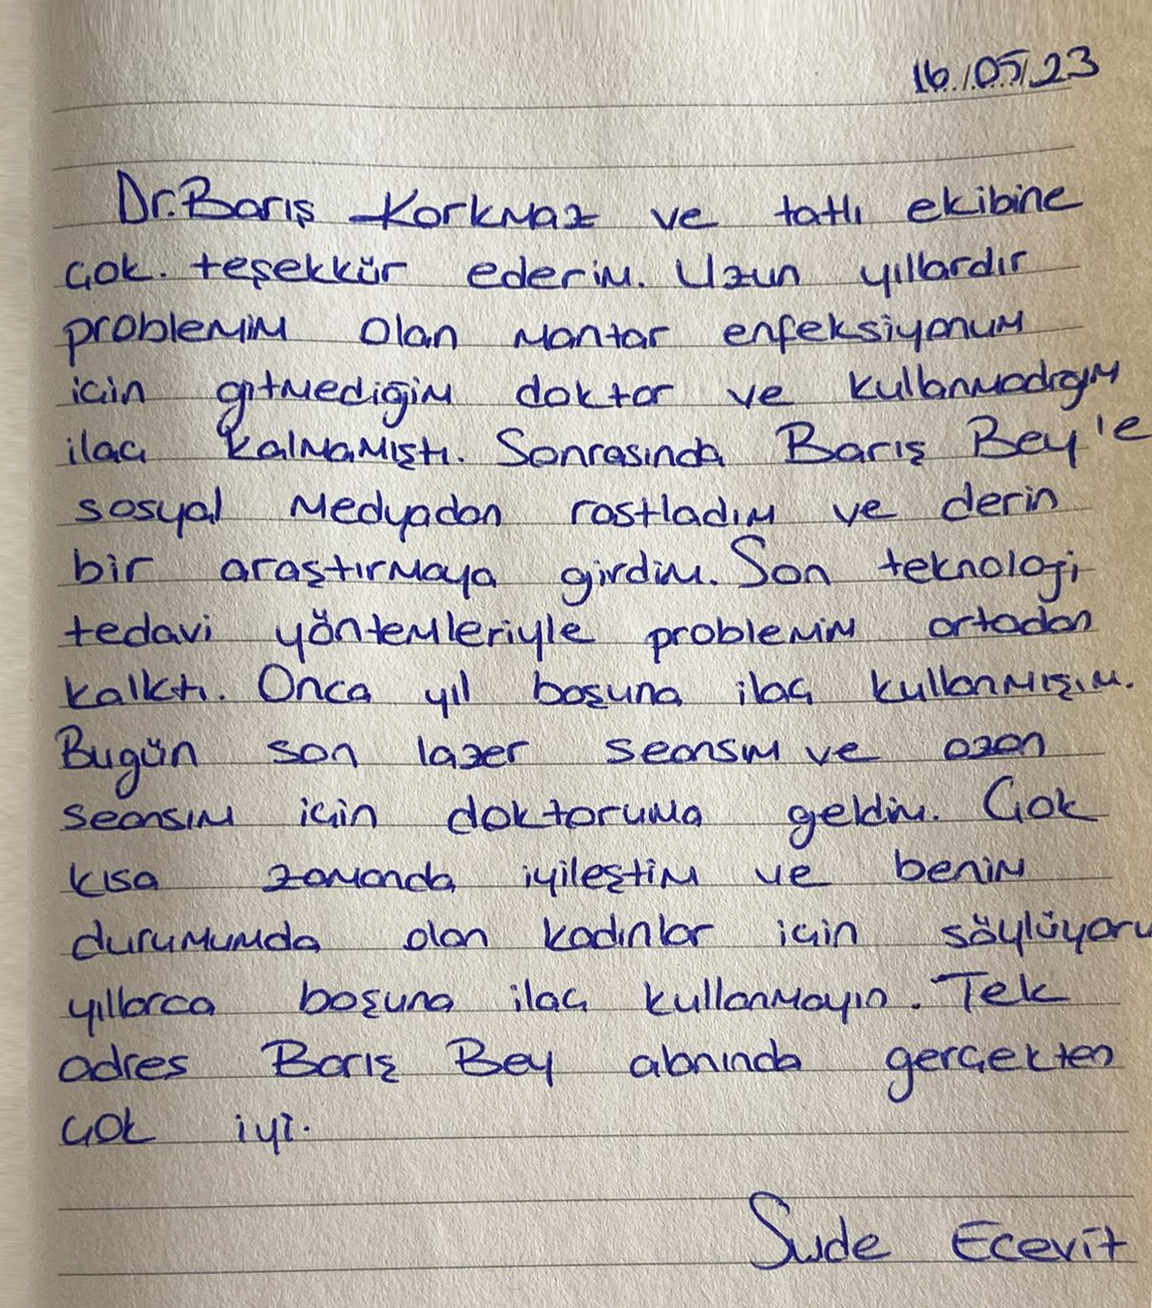 16/05/23
Dr.Barış Korkmaz ve tatlı ekibine
çok. teşekkür ederim. Uzun yıllardır
problemim olan mantar enfeksiyonum
için gitmediğim doktor ve kullanmadığım
ilaç kalmamıştı. Sonrasında Barış Bey'le
sosyal medyadan rastladım ve derin
bir araştırmaya girdim. Son teknoloji
tedavi yöntemleriyle problemim ortadan
kalktı. Onca yıl boşuna ilaç kullanmışım.
Bugün son lazer seansım ve ozon
seansım için doktoruma geldim. Çok
kısa zamanda iyileştim ve benim
durumumda olan kadınlar için söylüyoru
yıllarca boşuna ilaç kullanmayın. Tek
adres Barış Bey alanında gerçekten
çok iyi.
Sude Ecevit